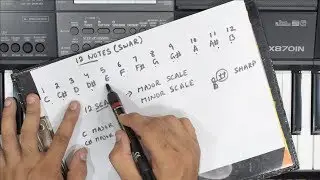 XB70IN
12 NOTES (SWAR)
1 2 3 4 5 6 7 8 9 10 11 12
C C# D D# E F F# G G# A A# B
# SHARP
12 → MAJOR SCALE
MINOR SCALE
C MAJOR
C# MAJOR